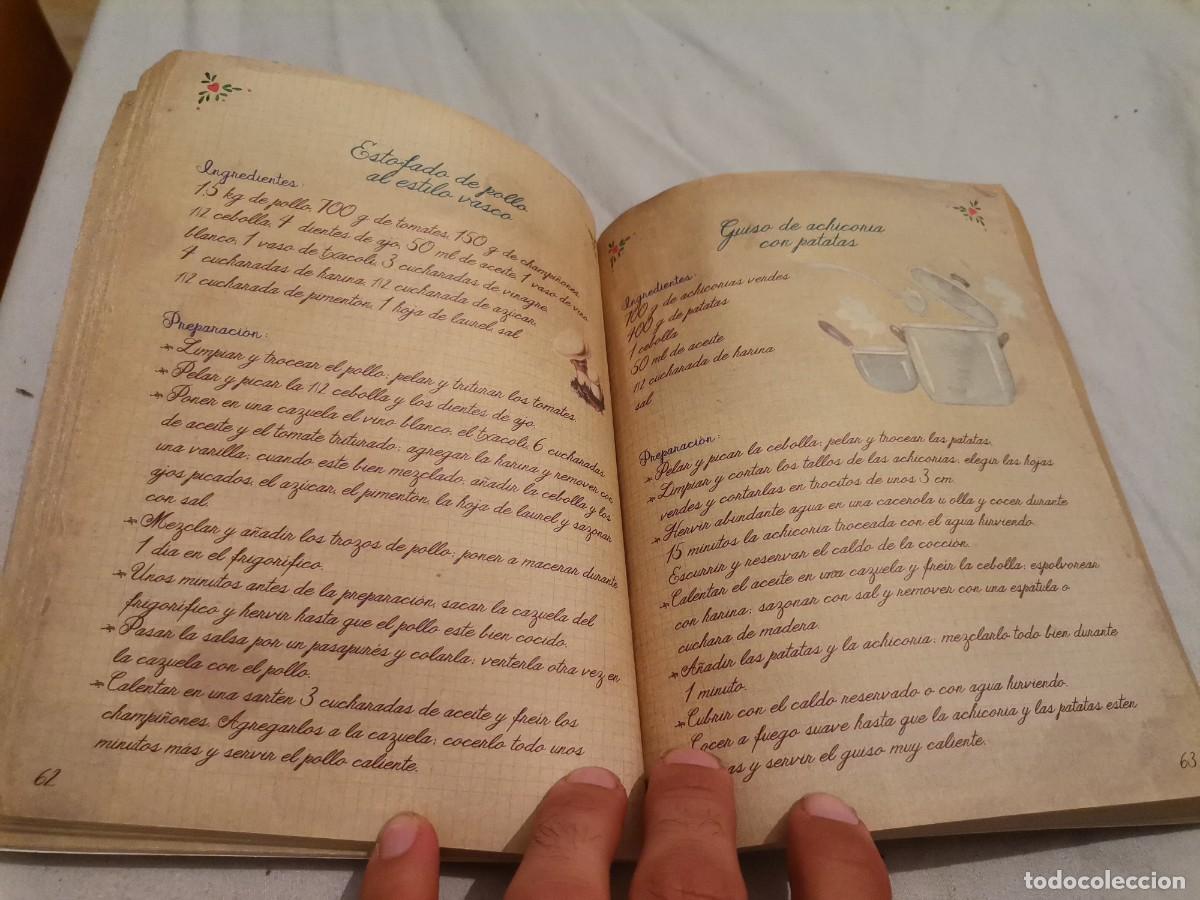 Estofado de pollo
al estilo vasco
Ingredientes:
1,5 kg de pollo, 700 g de tomates, 150 g de champiñones,
1/2 cebolla, 4 dientes de ajo, 50 ml de aceite, 1 vaso de vino
blanco, 1 vaso de txacoli, 3 cucharadas de vinagre,
4 cucharadas de harina, 1/2 cucharada de azúcar,
1/2 cucharada de pimentón, 1 hoja de laurel, sal
Preparación:
Limpiar y trocear el pollo; pelar y triturar los tomates.
Pelar y picar la 1/2 cebolla y los dientes de ajo.
Poner en una cazuela el vino blanco, el txacoli, 6 cucharadas
de aceite y el tomate triturado; agregar la harina y remover con
una varilla; cuando este bien mezclado, añadir la cebolla y los
ajos picados, el azúcar, el pimentón, la hoja de laurel y sazonar
con sal.
Mezclar y añadir los trozos de pollo; poner a macerar durante
1 día en el frigorífico.
Unos minutos antes de la preparación, sacar la cazuela del
frigorífico y hervir hasta que el pollo este bien cocido.
Pasar la salsa por un pasapurés y colarla; verterla otra vez en
la cazuela con el pollo.
Calentar en una sarten 3 cucharadas de aceite y freír los
champiñones. Agregarlos a la cazuela; cocerlo todo unos
minutos más y servir el pollo caliente.
62
Guiso de achicoria
con patatas
Ingredientes:
700 g de achicorias verdes
400 g de patatas
1 cebolla
50 ml de aceite
1/2 cucharada de harina
sal
Preparación:
Pelar y picar la cebolla; pelar y trocear las patatas.
Limpiar y cortar los tallos de las achicorias, elegir las hojas
verdes y cortarlas en trocitos de unos 3 cm.
Hervir abundante agua en una cacerola u olla y cocer durante
15 minutos la achicoria troceada con el agua hirviendo.
Escurrir y reservar el caldo de la cocción.
Calentar el aceite en una cazuela y freír la cebolla; espolvorear
con harina; sazonar con sal y remover con una espátula o
cuchara de madera.
Añadir las patatas y la achicoria; mezclarlo todo bien durante
1 minuto.
Cubrir con el caldo reservado o con agua hirviendo.
Cocer a fuego suave hasta que la achicoria y las patatas esten
y servir el guiso muy caliente.
63
todocoleccion